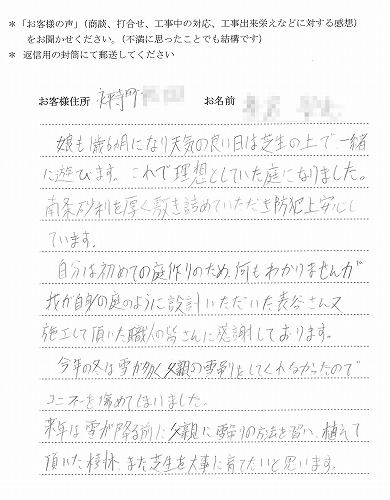 ＊「お客様の声」（商談、打合せ、工事中の対応、工事出来栄えなどに対する感想）
をお聞かせください。（不満に思ったことでも結構です）
＊ 返信用の封筒にて郵送してください
お客様住所 永平寺町 お名前
娘も1歳6ヵ月になり天気の良い日は芝生の上で一緒
に遊びます。これで理想としていた庭になりました。
南条砂利を厚く敷き詰めていただき防犯上安心し
ています。
自分は初めての庭作りのため、何もわかりませんが
我が自身の庭のように設計いただいた表谷さん又
施工して頂いた職人の皆さんに感謝しております。
今年の冬は雪が多く父親の雪吊りをしてくれなかったので
コニファーを傷めてしまいました。
来年は雪が降る前に父親に雪吊りの方法を習い、植えて
頂いた植林、また芝生を大事に育てたいと思います。